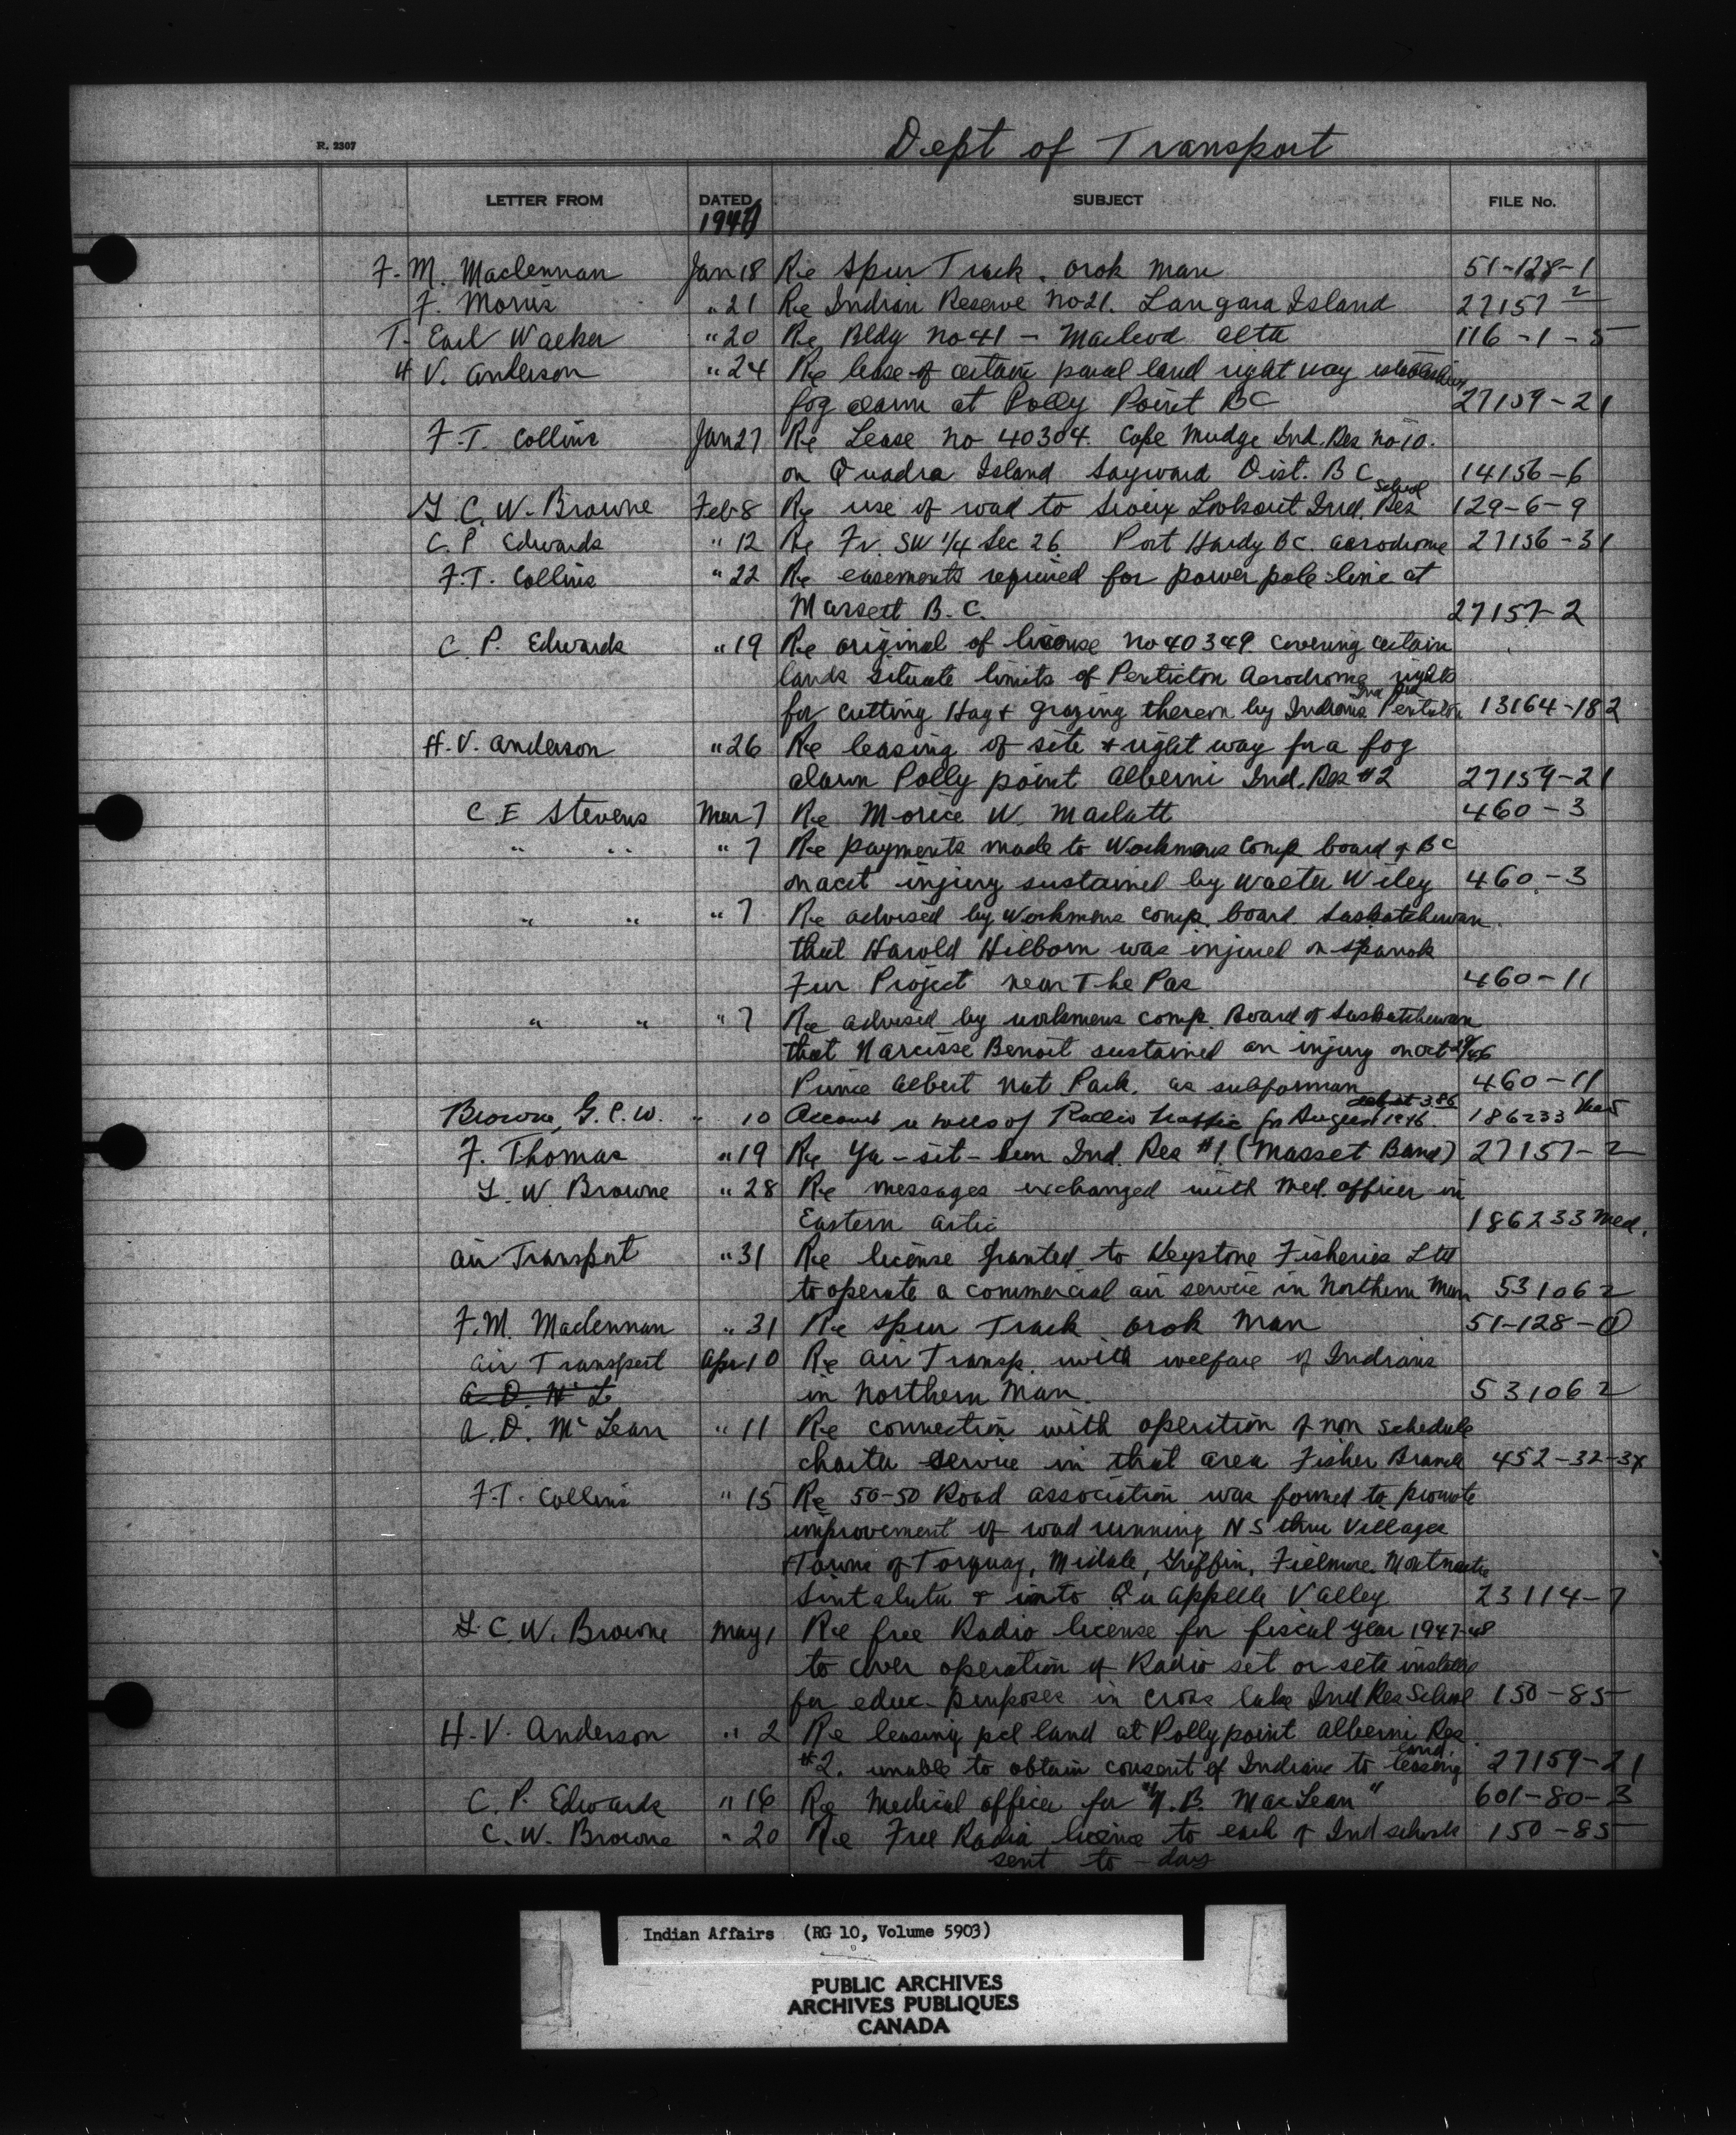 R. 2307
Dept of Transport
LETTER FROM DATED SUBJECT FILE No.
1947
F. M. Maclennan Jan 18 Re Spur Track. Orok Man 51-128-1
F. Morris " 21 Re Indian Reserve no 21. Langara Island 27157-2
T. Earl Walker " 20 Re Bldg no 41 - Macleod Alta 116-1-5
H V. Anderson " 24 Re lease of certain parcel land right way establishing
fog alarm at Polly Point BC 27159-21
F.T. Collins Jan 27 Re Lease no 40304. Cape Mudge Ind. Res no 10.
on Quadra Island Sayward Dist. B C 14156-6
G C. W. Browne Feb 8 Re use of road to Sioux Lookout Ind. Res School 129-6-9
C. P Edwards " 12 Re Fr. SW 1/4 Sec 26 Port Hardy BC. aerodrome 27156-31
F.T. Collins " 22 Re easements required for power pole line at
Massett B.C. 27157-2
C. P. Edwards " 19 Re original of license no 40349 covering certain
lands situate limits of Penticton Aerodrome rights
for cutting Hay & grazing thereon by Indians Penticton Ind Res 13164-182
H. V. Anderson " 26 Re leasing of site & right way for a fog
alarm Polly point Alberni Ind. Res #2 27159-21
C E Stevens Mar 7 Re Morice W. 460-3
" " " 7 Re payments made to Workmens Comp board of B C
on acct injury sustained by Walter Wiley 460-3
" " " 7 Re advised by Workmens Comp. board Saskatchewan.
that Harold Hilborn was injured on
Fur Project near The Pas 460-11
" " " 7 Re advised by workmens comp. Board of Saskatchewan
that Narcisse Benoit sustained an injury on Oct 29/46
Prince Albert Nat Park. as subforman 460-11
Browne, G.C.W. " 10 Account re tolls of Radio traffic for August 1946. 3.86 186233
F. Thomas " 19 Re Ya-sit- Ind. Res #1 (Masset Band) 27157-2
G. W Browne " 28 Re messages exchanged with med. officer in
Eastern Artic 186233 Med.
Air Transport " 31 Re license granted to Keystone Fisheries Ltd
to operate a commercial air service in Northern Man 531062
F.M. Maclennan " 31 Re Spur Track Orok Man 51-128-1
Air Transport Apr 10 Re air Transp. with welfare of Indians
A. D. Mc L in Northern Man. 531062
A. D. McLean " 11 Re connection with operation of non schedule
charter service in that area Fisher Branch 452-32-34
F.T. Collins " 15 Re 50-50 Road association was formed to promote
improvement of road running N S thru Villages
Towns of Torquay, Midale, Griffin, Fillmore, Montmartre
Sintaluta & into Qu appelle Valley 23114-7
G. C. W. Browne May 1 Re free Radio license for fiscal year 1947-48
to cover operation of Radio set or sets installed
for educ. purposes in Cross Lake Ind Res School 150-85
H. V. Anderson " 2 Re leasing pcl land at Polly point Alberni Res
#2. unable to obtain consent of Indians to leasing land. 27159-21
C. P. Edwards " 16 Re Medical officer for "N. B. MacLean" 601-80-3
C. W. Browne " 20 Re Free Radio licence to each of Ind schools 150-85
sent to-day
Indian Affairs (RG 10, Volume 5903)
PUBLIC ARCHIVES
ARCHIVES PUBLIQUES
CANADA